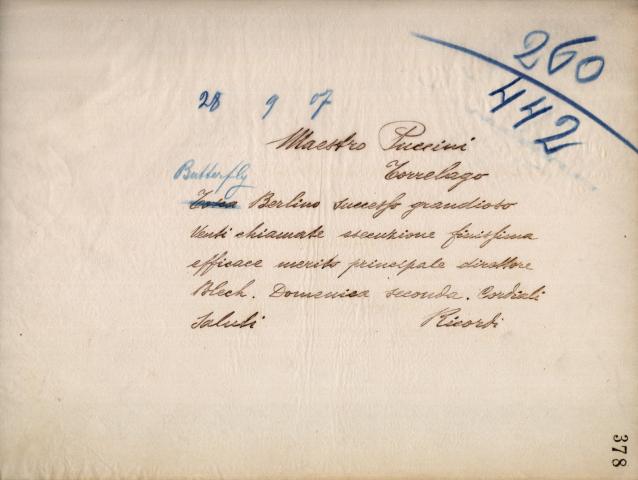 260
442
28 9 07
Maestro Puccini
Butterfly Torrelago
Tosca Berlino successo grandioso
Venti chiamate esecuzione finissima
efficace merito principale direttore
Blech. Domenica seconda. Cordiali
Saluti Ricordi
378